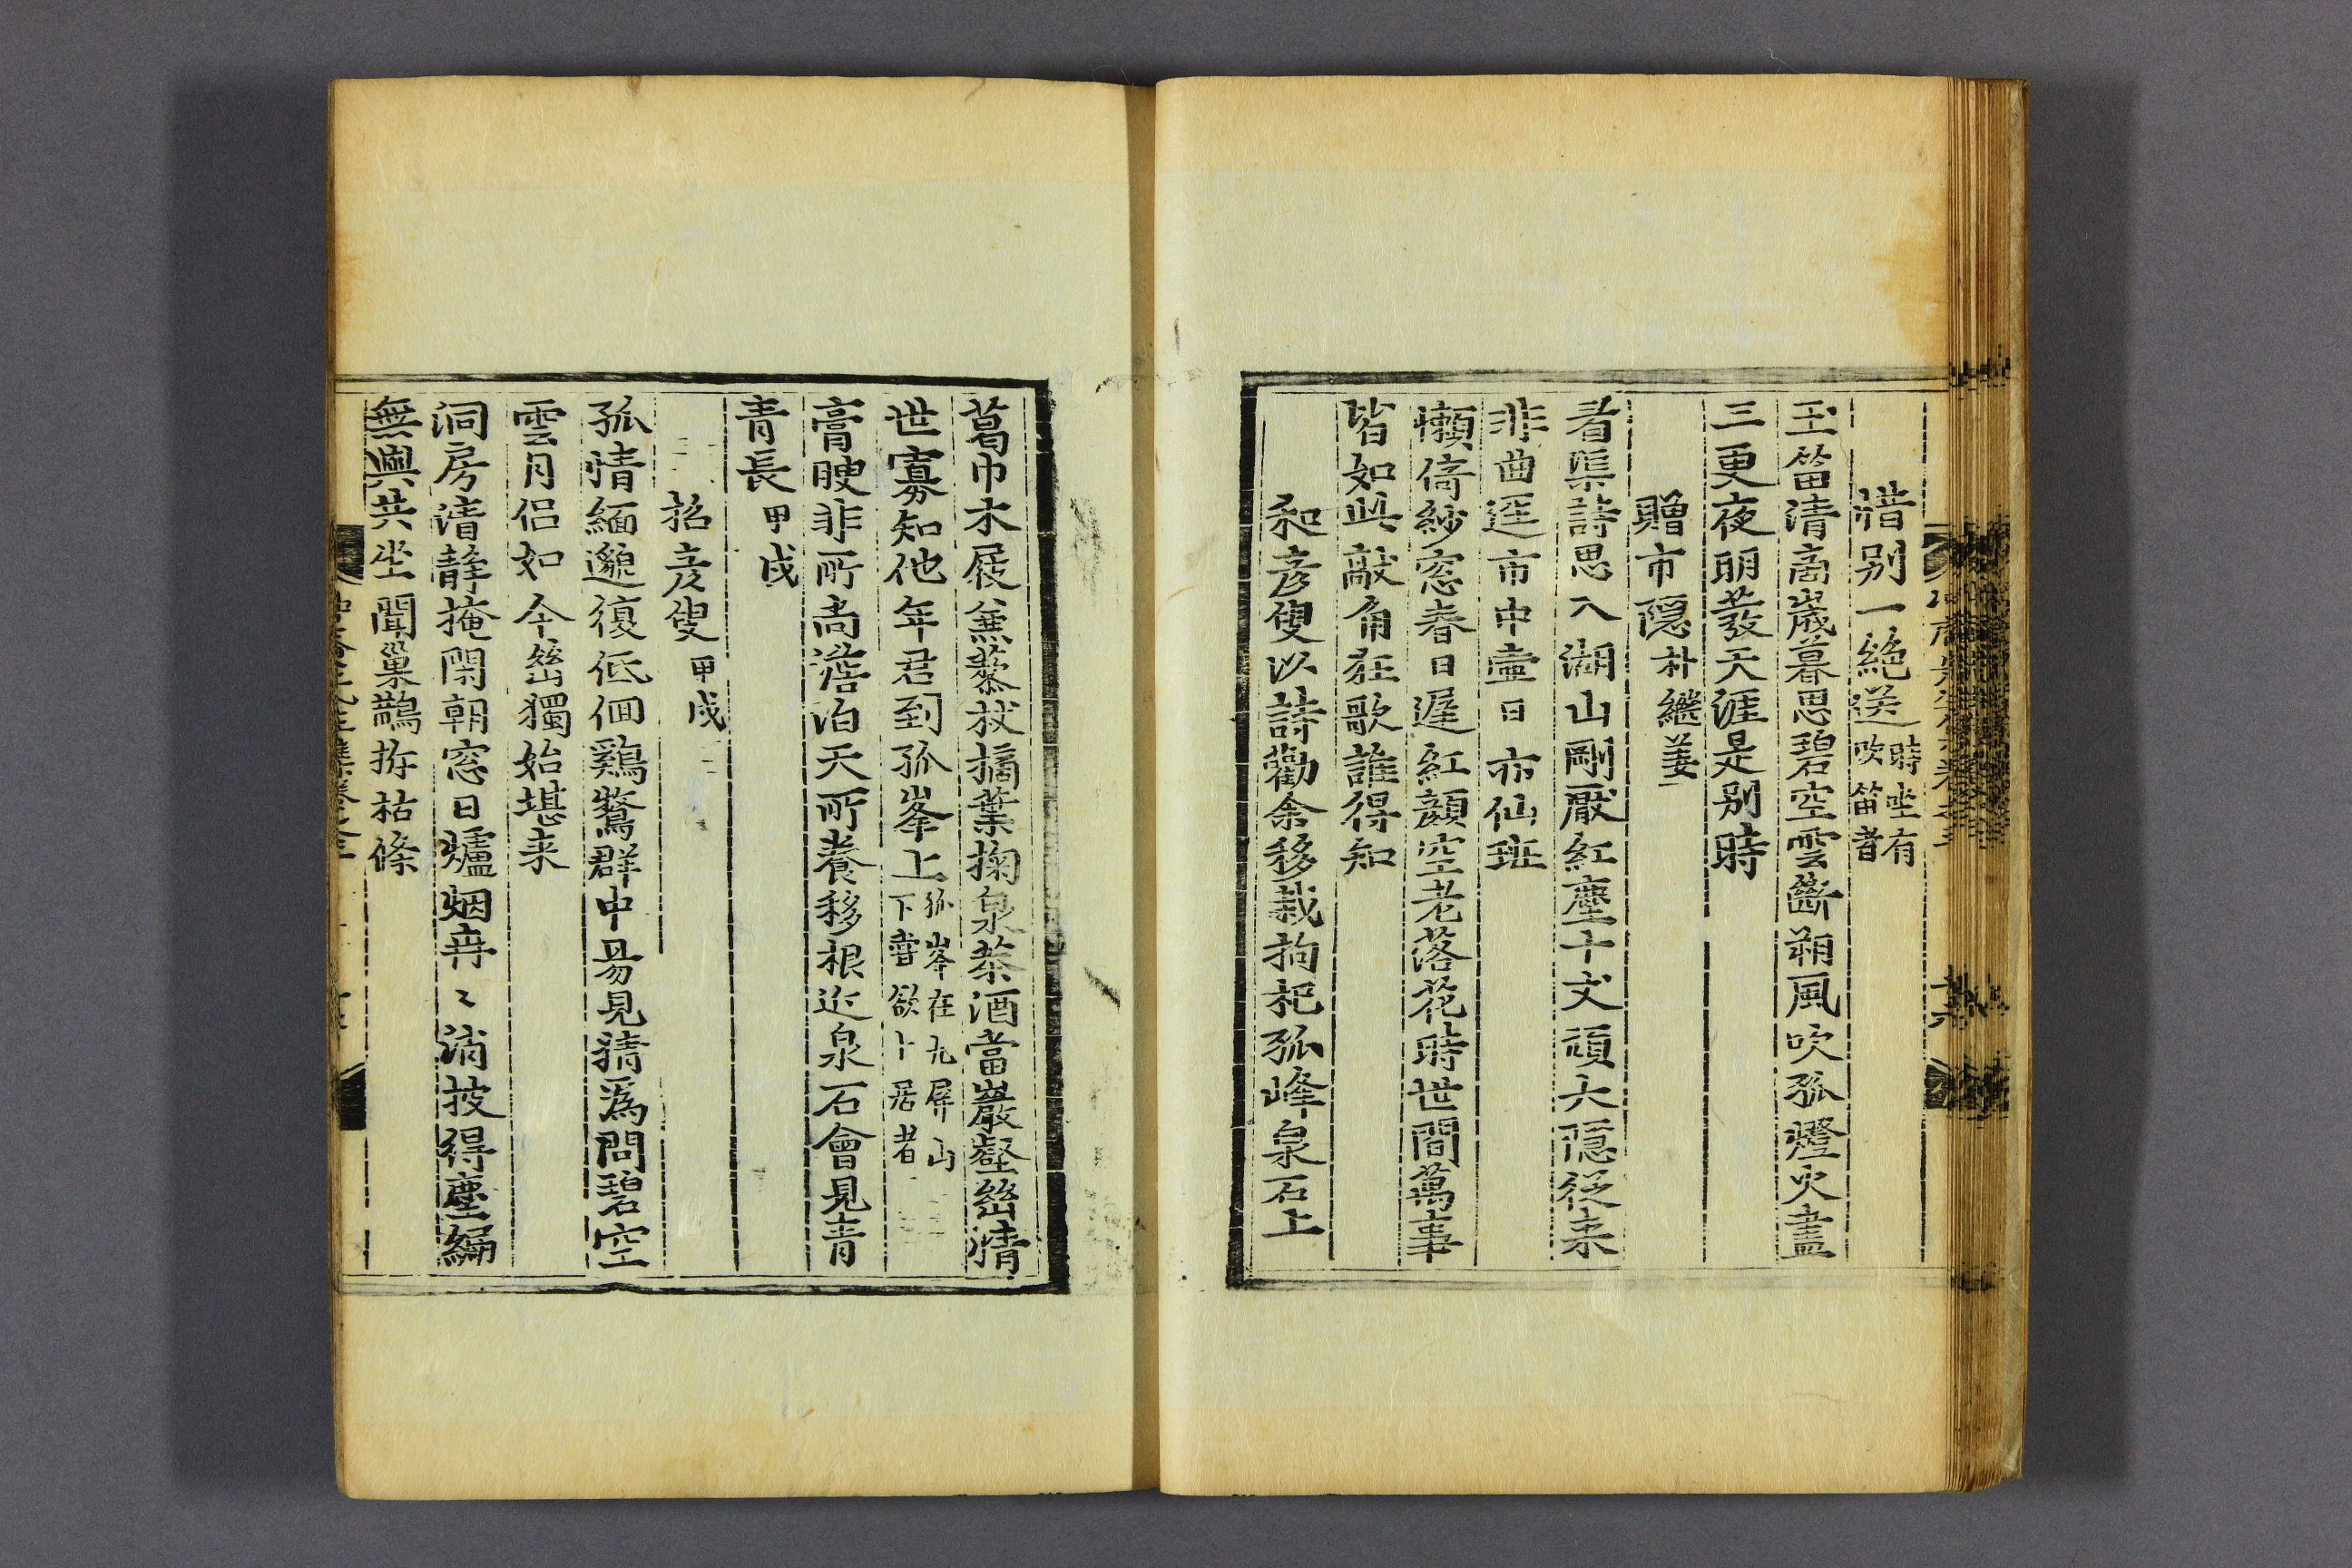 惜别一絶送 時坐有吹笛者
玉笛清高歲暮思碧空雲斷朔風吹孤燈火盡
三更夜明發天涯是别時
贈市隠 朴繼姜
看渠詩思入湖山剛厭紅塵十丈頑大隠從来
非曲逕市中壷日亦仙班
懶倚紗窓春日遲紅顔空老落花時世間萬事
皆如此敲角狂歌誰得知
和彦叟以詩勸余移栽枸杞孤峰泉石上
葛巾木屐兼藜杖摘葉掬泉恭酒當巖壑絲情
世寡知他年君到孤峯上 孤峯在九屏山下嘗欲卜居者
膏腴非所尚澹泊天所養移根近泉石會見青
青長 甲戌
招彦叟 甲戌
孤情緬邈復低佪鷄鶩群中易見猜爲問碧空
雲月侣如今絲獨始堪来
洞房清静掩閑朝窓日爐烟冉〻消披得塵編
無與共坐聞巢鵲拆枯條